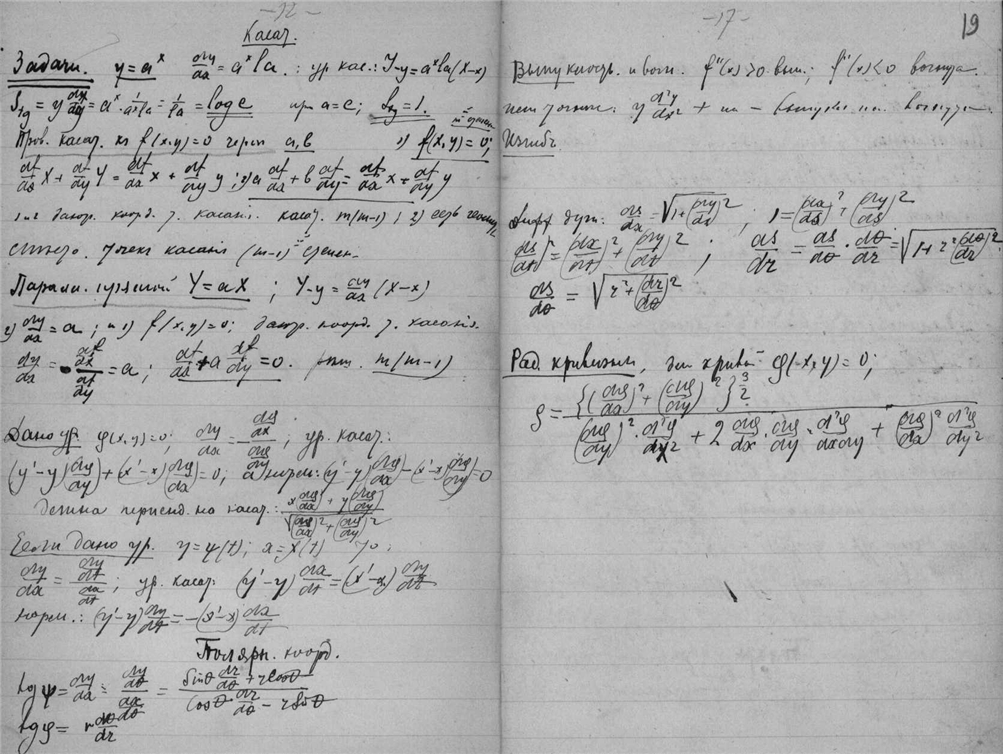 -32-
Касат.
Задачи. y=aˣ dy/dx = aˣ la.: ур кас.: Y-y=aˣla(X-x)
S_tg = y dx/dy = aˣ · 1/aˣla = 1/la = log e при a=e; S_tg=1.
Пров. касат. къ f(x,y)=0 через a,b 1) f(x,y)=0;
df/dx X + df/dy Y = df/dx x + df/dy y; 2) a df/dx + b df/dy = df/dx x + df/dy y
1 и 2 даютъ коорд. т. касанія. касат. m(m-1); 2) есть
точекъ касанія (m-1)ой степен.
Паралл. прямой Y=aX; Y-y = dy/dx (X-x)
2) dy/dx = a; и 1) f(x,y)=0; даютъ коорд. т. касанія.
dy/dx = - (df/dx)/(df/dy) = a; df/dx + a df/dy = 0. m(m-1)
Дано ур. φ(x,y)=0; dy/dx = - (dφ/dx)/(dφ/dy); ур. касат.:
(y'-y)(dφ/dy)+(x'-x)(dφ/dx)=0, а норм.: (y'-y)(dφ/dx)-(x'-x)(dφ/dy)=0
длина на касат.: (x(dφ/dx) + y(dφ/dy))/√((dφ/dx)²+(dφ/dy)²)
Если дано ур. y=ψ(t); x=χ(t) то:
dy/dx = (dy/dt)/(dx/dt); ур. касат: (y'-y) dx/dt = (x'-x) dy/dt
норм.: (y'-y) dy/dt = -(x'-x) dx/dt
Полярн. коорд.
tg ψ = dy/dx = (dy/dθ)/(dx/dθ) = (Sinθ dr/dθ + r Cosθ)/(Cosθ dr/dθ - r Sinθ)
tg φ = r dθ/dr
-17-
19
Выпуклость и вогн. f"(x)>0 вып.; f"(x)<0 вогнута.
y d²y/dx² + - выпукла
Изгибъ
Дифф дуги: ds/dx = √(1+(dy/dx)²); 1=(dx/ds)²+(dy/ds)²
(ds/dt)² = (dx/dt)² + (dy/dt)²; ds/dr = ds/dθ · dθ/dr = √(1+r²(dθ/dr)²)
ds/dθ = √(r²+(dr/dθ)²)
Рад. кривизны, для кривой φ(x,y)=0;
ρ = {(dφ/dx)² + (dφ/dy)²}^(3/2) / ((dφ/dy)² · d²φ/dx² + 2 dφ/dx · dφ/dy · d²φ/dxdy + (dφ/dx)² d²φ/dy²)